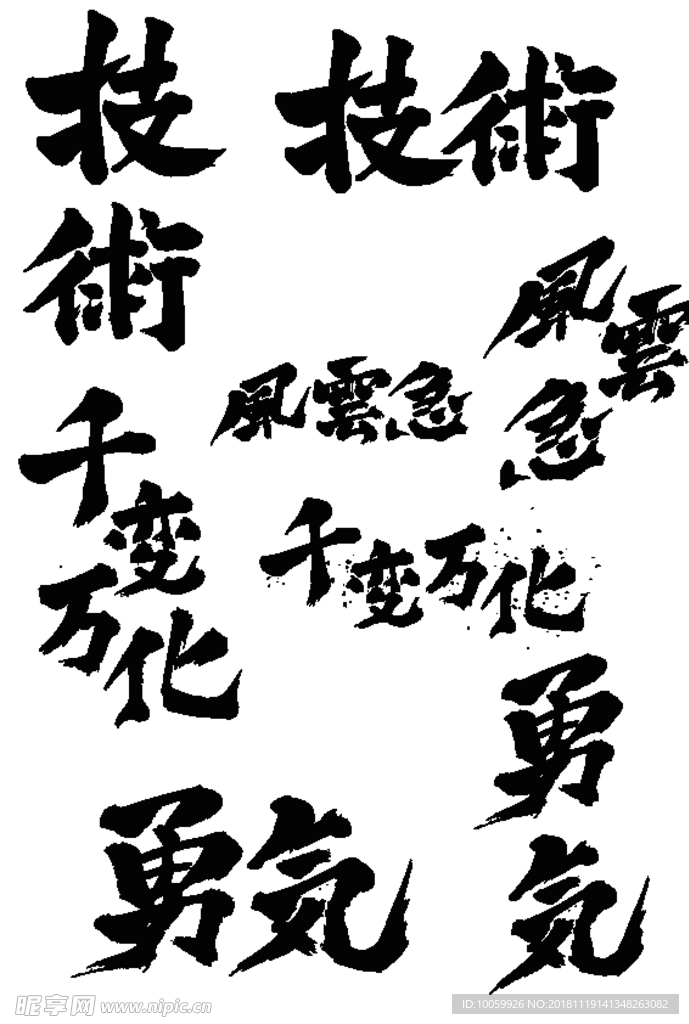 技術
技術
風雲急
風雲急
千变万化
千变万化
勇気
勇気
昵享网 www.nipic.cn
ID:10059926 NO:20181119141348263082